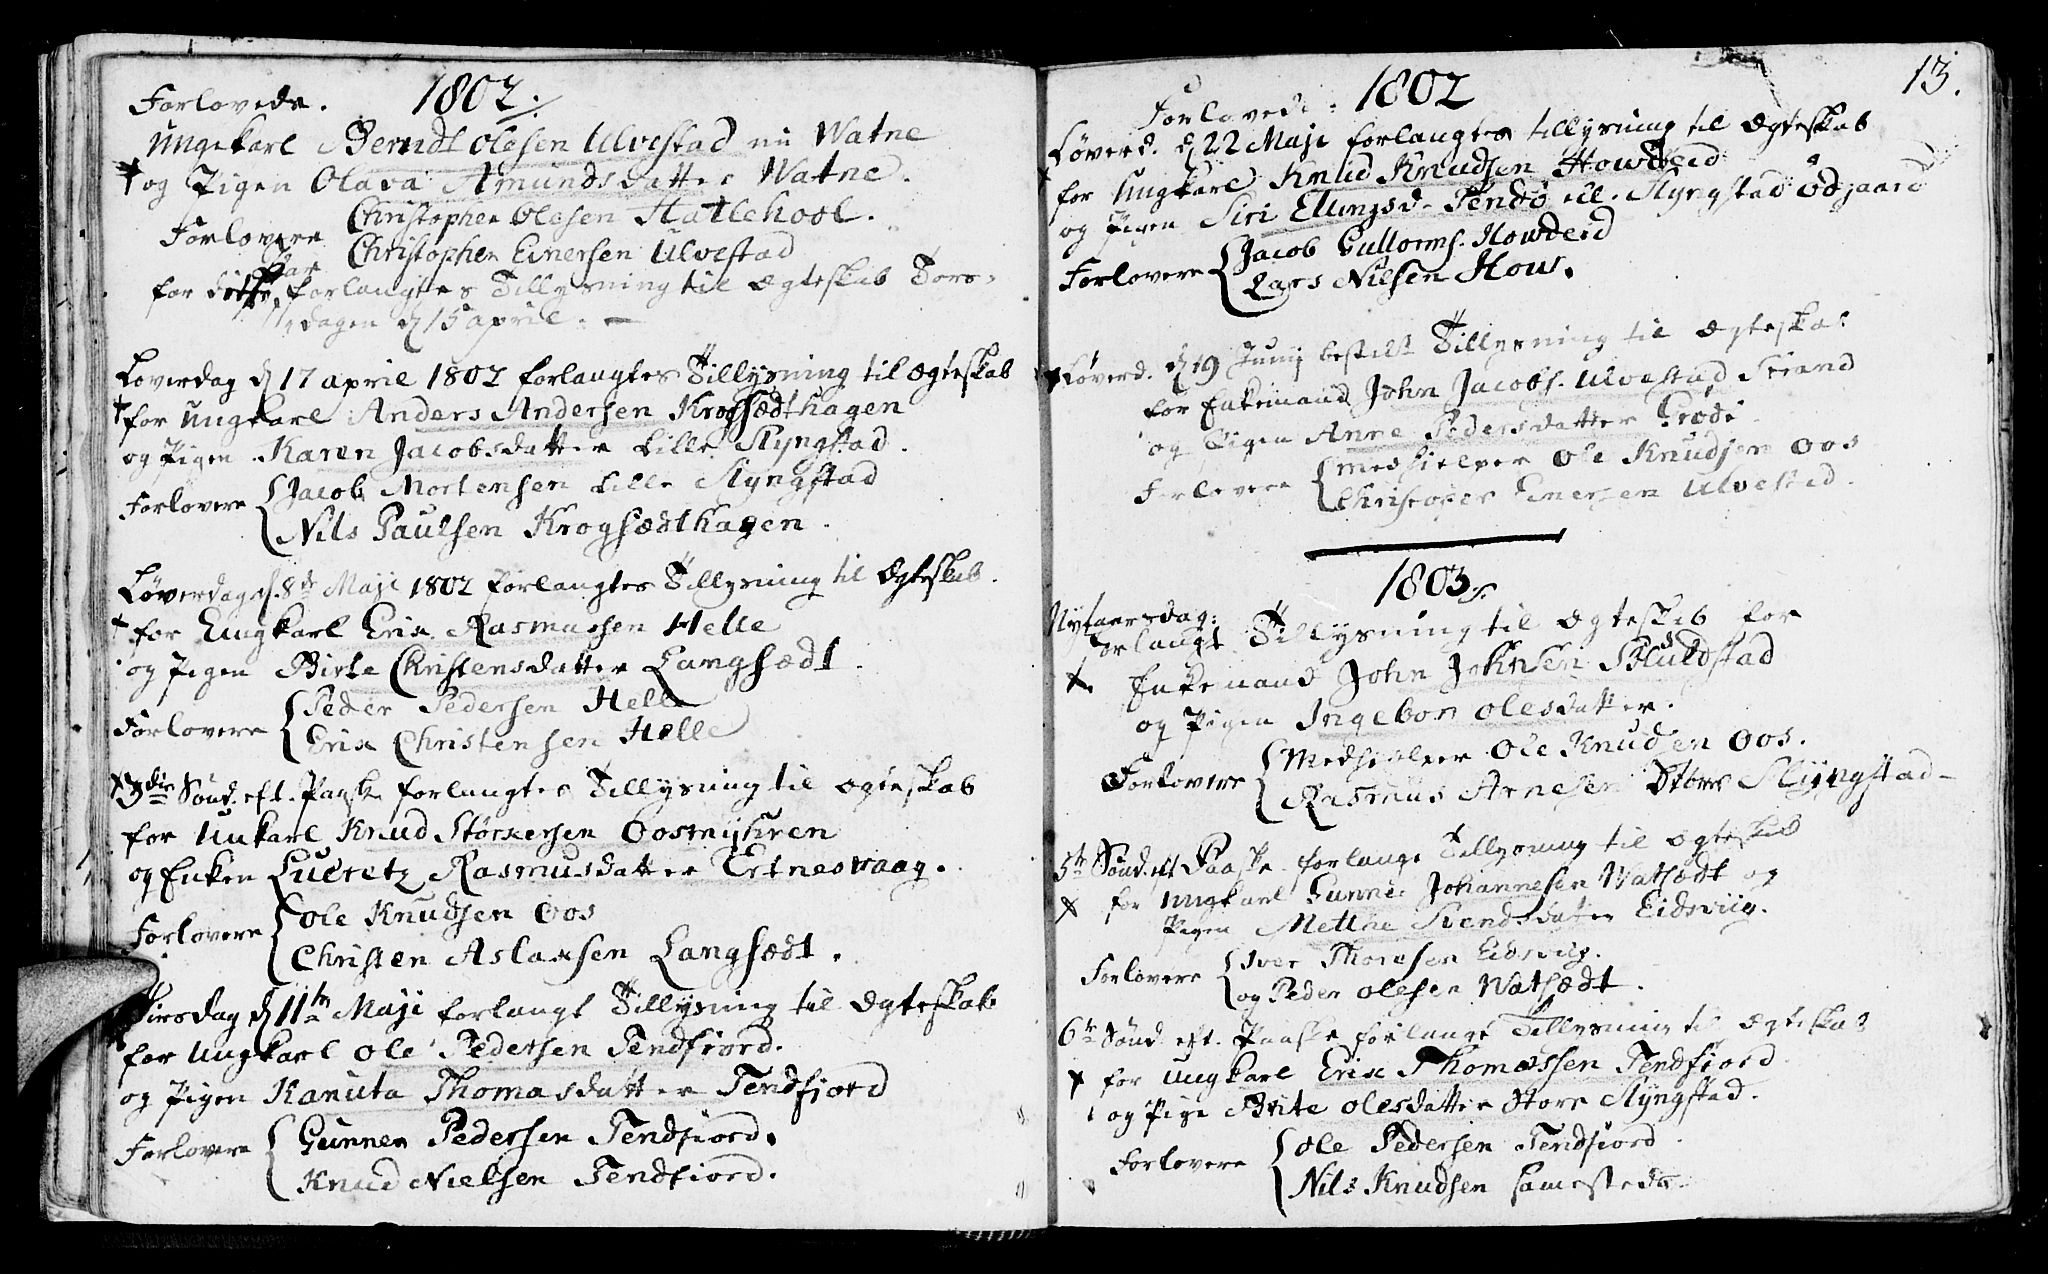 Forlovede. 1802.
Ungekarl Berndt Olesen Ulvestad nu Watne
og Pigen Olava Amundsdatter Watne.
Forlovere Christopher Olesen Hatlehool.
Christopher Einersen Ulvestad
Par
for dette forlangtes Tillysning til Ægteskab Tors-
dagen d 15 april.
Løverdag d 17 april 1802 forlangtes Tillysning til Ægteskab
for Ungkarl Anders Andersen Krogsædthagen
og Pigen Karen Jacobsdatter Lille Slyngstad.
Forlovere Jacob Mortensen Lille Slyngstad
Nils Paulsen Krogsædthagen.
Løverdag d. 8de Maji 1802 forlangtes Tillysning til Ægteskab.
for Ungkarl Erik Rasmussen Helle
og Pigen Birte Christensdatter Langsædt.
Forlovere Peder Pedersen Helle
Erik Christensen Helle
3die Sønd. eft. Paaske forlangtes Tillysning til Ægteskab
for Unkarl Knud Størkersen Oosmyhren
og Enken Lucretz Rasmusdatter Ertnesvaag.
Forlovere Ole Knudsen Oos
Christen Aslaksen Langsædt.
Tirsdag d 11te Maji forlangt Tillysning til Ægteskab
for Ungkarl Ole Pedersen Tendfiord.
og Pigen Kanuta Thomasdatter Tendfjord
Forlovere Gunner Pedersen Tendfiord.
Knud Nielsen Tendfiord.
13.
Forlovede. 1802
Løverd. d 22 Maji forlangtes tillysning til Ægteskab
for Ungkarl Knud Knudsen Howdeid
og Pigen Siri Ellingsd. Tendø ell. Slyngstad Ødgaard
Forlovere Jacob Gullorms. Howdeid
Lars Nilsen Hous.
Løverd. d 19 Junij bestilt Tillysning til Ægteskab
for Enkemand John Jacobs. Ulvestad Strand
og Pigen Anne Pedersdatter Grøde
Forlovere Medhielper Ole Knudsen Oos
Christopher Einersen Ulvestad.
1803.
Nytaarsdag:
forlangt Tillysning til Ægteskab for
Enkemand John Johnsen Skuldstad
og Pigen Ingebor Olesdatter.
Forlovere Medhielper Ole Knudsen Oos.
Rasmus Arnesen Store Slyngstad-
5te Sønd. eft Paaske forlangt Tillysning til Ægteskab
for Ungkarl Gunner Johannesen Watsædt og
Pigen Metthe Svendsdatter Eidsviig.
Forlovere Iver Thoresen Eidsvig.
og Peder Olesen Watsædt.
6te Sønd. eft. Paaske forlangt Tillysning til Ægteskab
for Ungkarl Erik Thomassen Tendfiord
og Pige Brite Olesdatter Store Slyngstad.
Forlovere Ole Pedersen Tendfiord
Nils Knudsen samesteds